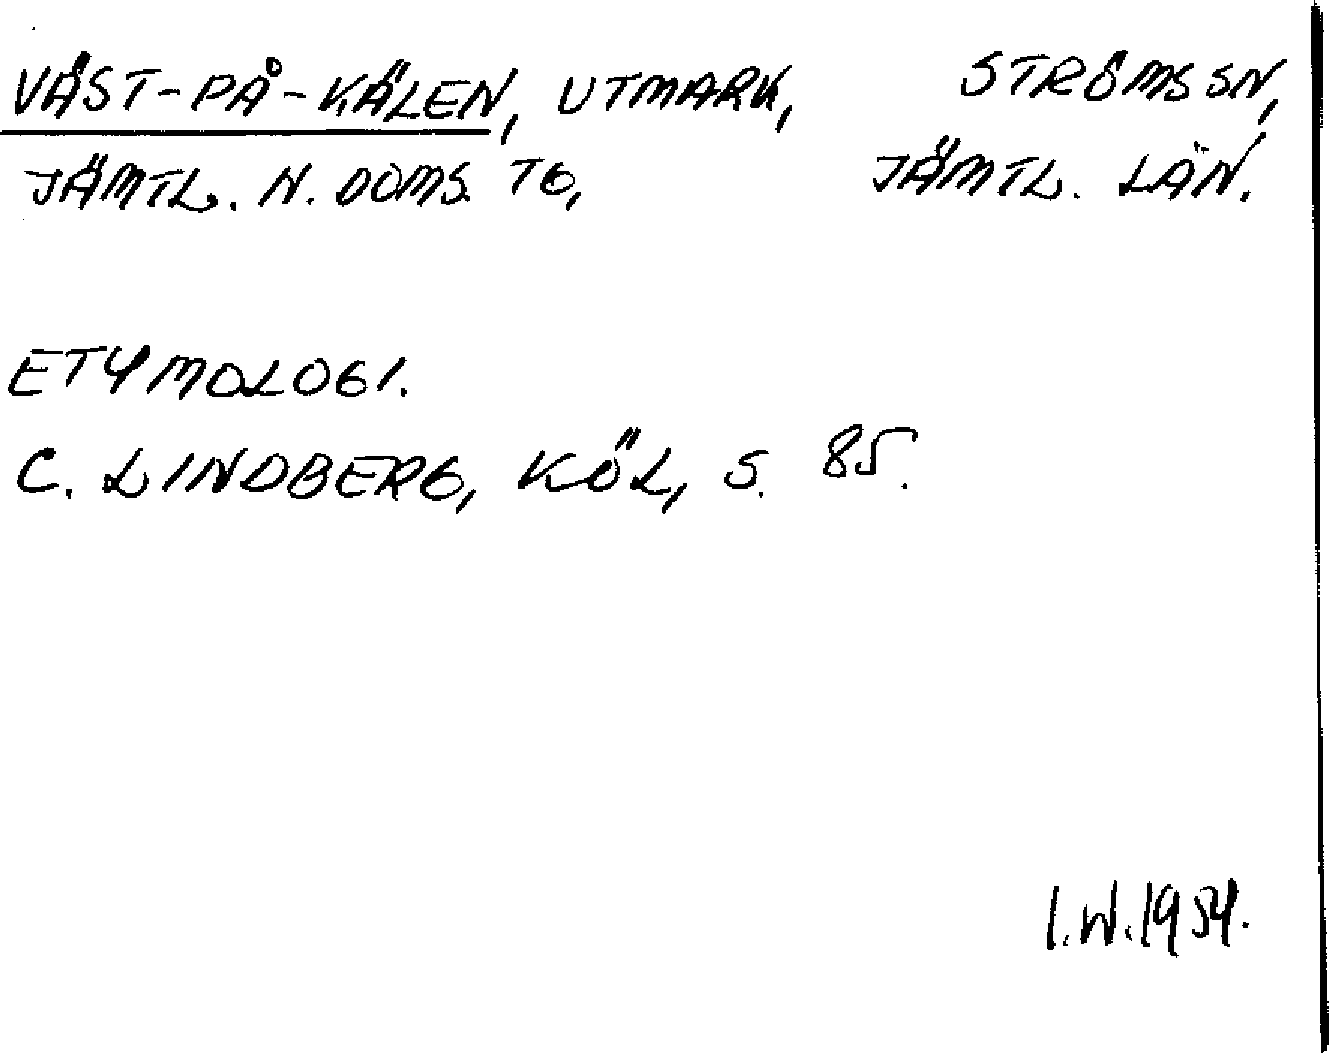 VÄST-PÅ-KÄLEN, UTMARK, STRÖMS SN,
JÄMTL. N. DOMS. TG, JÄMTL. LÄN.
ETYMOLOGI.
C. LINDBERG, KÖL, S. 85.
I.W.1954.